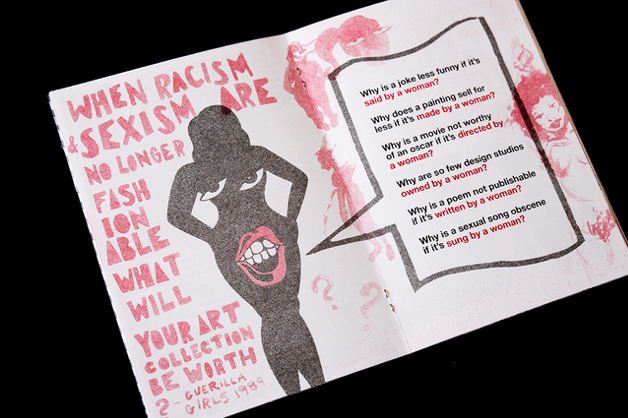 WHEN RACISM
& SEXISM ARE
NO LONGER
FASH
ION
ABLE
WHAT
WILL
YOUR ART
COLLECTION
BE WORTH
?- GUERILLA
GIRLS 1989
Why is a joke less funny if it's
said by a woman?
Why does a painting sell for
less if it's made by a woman?
Why is a movie not worthy
of an oscar if it's directed by
a woman?
Why are so few design studios
owned by a woman?
Why is a poem not publishable
if it's written by a woman?
Why is a sexual song obscene
if it's sung by a woman?
? ?